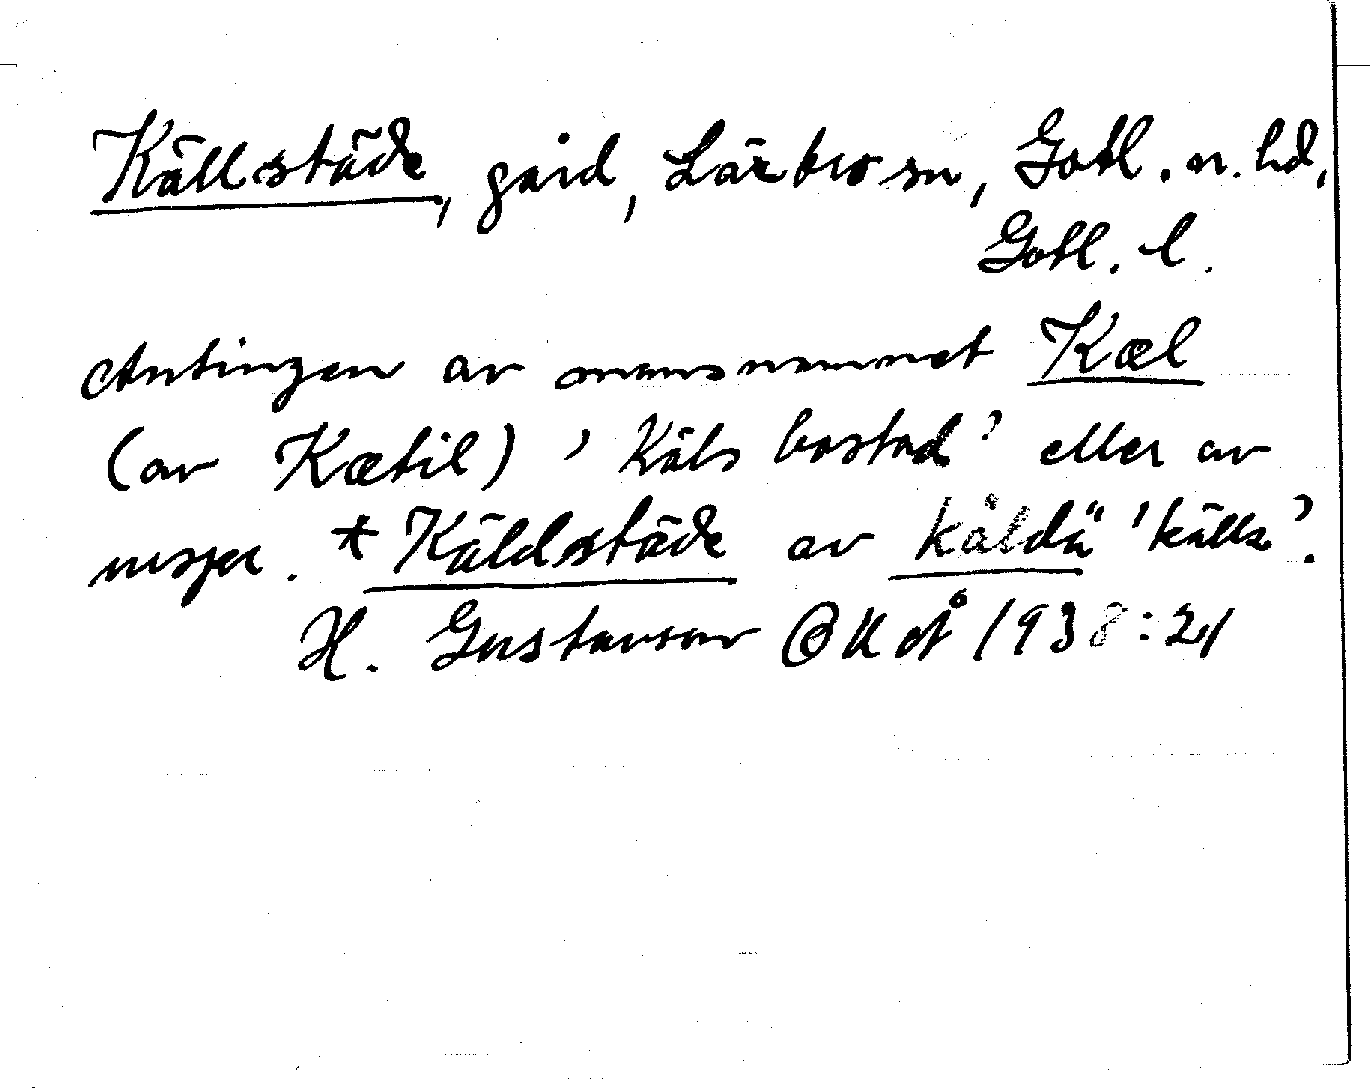 Källstäde, gård, Lärbro sn, Gotl. n. hd,
Gotl. l.
Antingen av mansnamnet Kæl
(av Kætil) 'Käls bostad' eller av
urspr. *Käldstäde av käldä 'källa'.
H. Gustavson GKÅ 1938:21